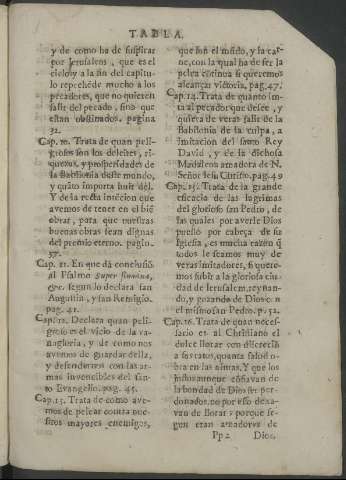 TABLA.
y de como ha de suspirar
por Jerusalem, que es el
cielo: y a la fin del capitu
lo reprehẽde mucho a los
pecadores, que no quieren
salir del pecado, sino que
estan obstinados. pagina
32.
Cap. 10. Trata de quan peli
grosos son los deleites, ri
quezas, y prosperidades de
la Babilonia deste mundo,
y quãto importa huir dèl.
Y de la recta intẽcion que
avemos de tener en el biẽ
obrar, para que nuestras
buenas obras sean dignas
del premio eterno. pagin.
37.
Cap. 11. En que dà conclusiõ
al Psalmo Super flumina,
&c. segun lo declara san
Augustin, y san Remigio.
pag. 41.
Cap. 12. Declara quan peli
groso es el vicio de la va-
nagloria, y de como nos
avemos de guardar della,
y defendernos con las ar-
mas invencibles del san-
to Evangelio. pag. 45.
Cap. 13. Trata de como ave-
mos de pelear contra nue
stros mayores enemigos,
que son el mũdo, y la car-
ne, con la qual ha de ser la
pelea cõtinua si queremos
alcãçar victoria. pag. 47.
Cap. 14. Trata de quanto im-
ta al pecador que desee, y
quiera de veras salir de la
Babilonia de la culpa, a
imitacion del santo Rey
David, y de la dichosa
Madalena amadora de N.
Señor Jesu Christo. pag. 49
Cap. 15. Trata de la grande
eficacia de las lagrimas
del glorioso san Pedro, de
las quales por averle Dios
puesto por cabeça de su
Iglesia, es mucha razon q̃
todos le seamos muy de
veras imitadores, si quere-
mos subir a la gloriosa ciu
dad de Ierusalem, reynan-
do, y gozando de Dios con
el mismo san Pedro. p. 52.
Cap. 16. Trata de quan neces-
sario es al Christiano el
dulce llorar con discreciõ
a sus ratos, quanta salud o-
bra en las almas. Y que los
justos aunque cõfiavan de
la bondad de Dios ser per-
donados, no por esso dexa-
van de llorar: porque se-
gun eran amadores de
Pp 2 Dios,